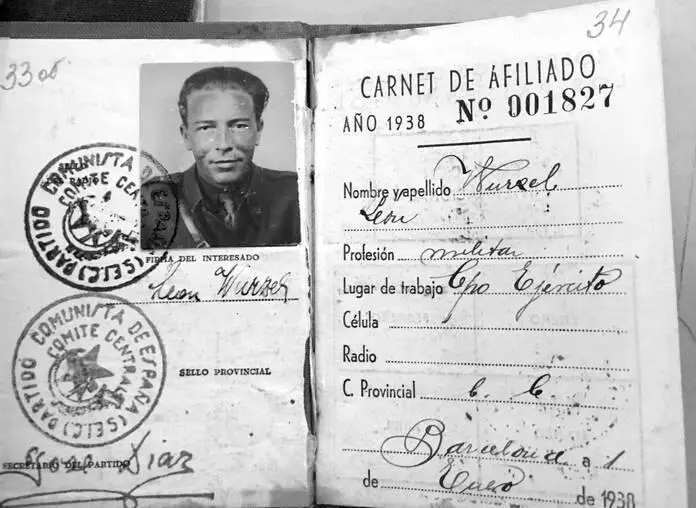 33
34
PARTIDO COMUNISTA DE ESPAÑA (S.E.I.C.)
COMITE CENTRAL
FIRMA DEL INTERESADO
Leon Wurzel
PARTIDO COMUNISTA DE ESPAÑA (S.E.I.C.)
COMITE CENTRAL
SELLO PROVINCIAL
SECRETARIO DEL PARTIDO
Diaz
CARNET DE AFILIADO
AÑO 1938 Nº 001827
Nombre y apellido Wurzel
Leon
Profesión militar
Lugar de trabajo Cpo Ejército
Célula
Radio
C. Provincial C. C.
Barcelona a 1
de Enero de 1938